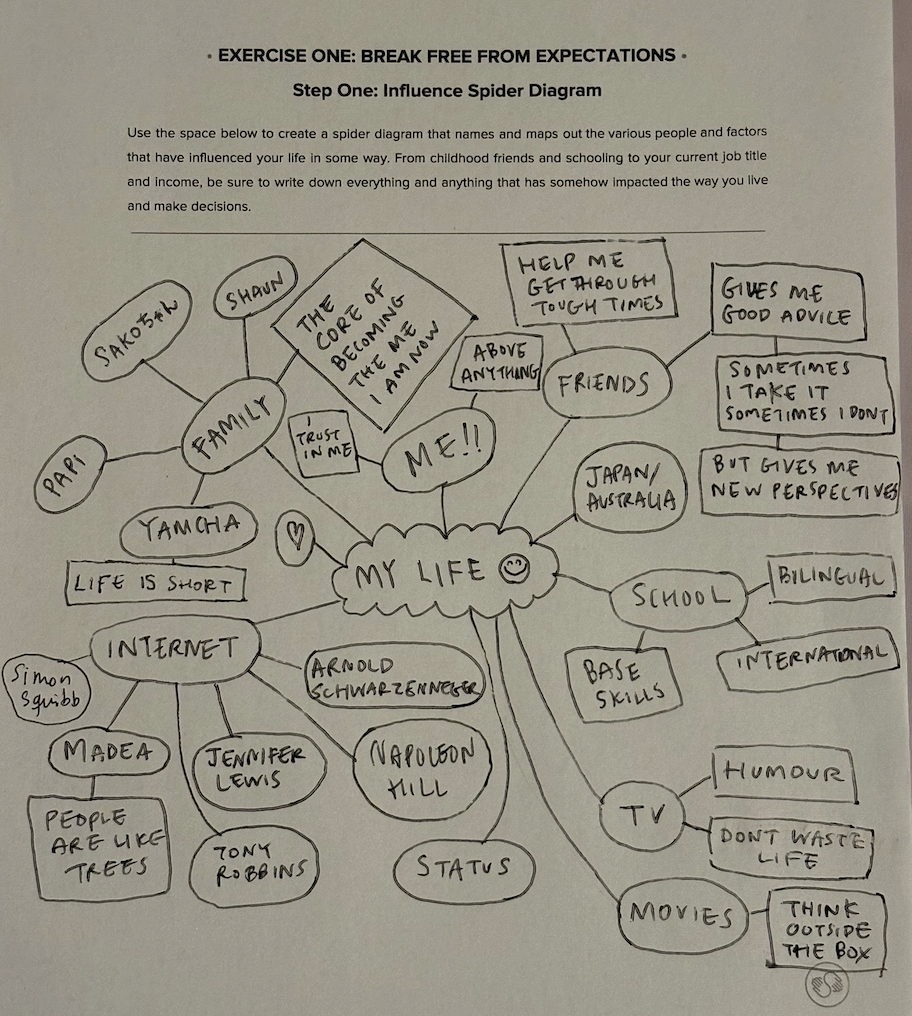 · EXERCISE ONE: BREAK FREE FROM EXPECTATIONS ·
Step One: Influence Spider Diagram
Use the space below to create a spider diagram that names and maps out the various people and factors
that have influenced your life in some way. From childhood friends and schooling to your current job title
and income, be sure to write down everything and anything that has somehow impacted the way you live
and make decisions.
SHAUN
THE
CORE OF
BECOMING
THE ME
I AM NOW
FAMILY
PAPi
YAMCHA
LIFE IS SHORT
I
TRUST
IN ME
ME!!
ABOVE
ANYTHING
HELP ME
GET THROUGH
TOUGH TIMES
FRIENDS
GIVES ME
GOOD ADVICE
SOMETIMES
I TAKE IT
SOMETIMES I DONT
BUT GIVES ME
NEW PERSPECTIVES
JAPAN/
AUSTRALIA
MY LIFE
SCHOOL
BILINGUAL
INTERNATIONAL
BASE
SKILLS
INTERNET
Simon
Squibb
MADEA
PEOPLE
ARE LIKE
TREES
JENNIFER
LEWIS
TONY
ROBBINS
ARNOLD
SCHWARZENNEGER
NAPOLEON
HILL
STATUS
TV
HUMOUR
DONT WASTE
LIFE
MOVIES
THINK
OUTSIDE
THE BOX